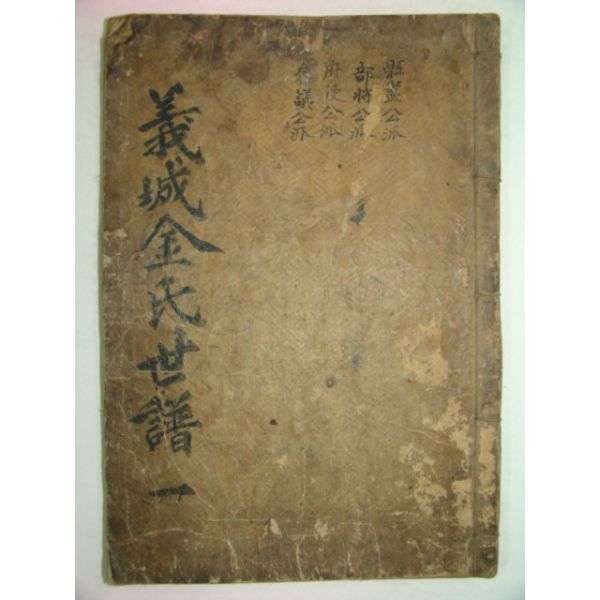 縣監公派
部將公派
府使公派
叅議公派
義城金氏世譜 一